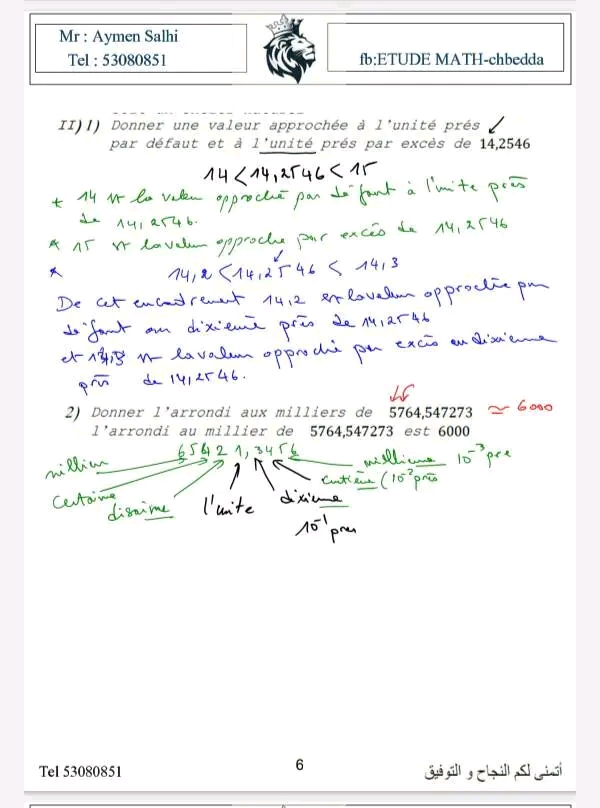 Mr : Aymen Salhi
Tel : 53080851
fb:ETUDE MATH-chbedda
II)1) Donner une valeur approchée à l'unité prés
par défaut et à l'unité prés par excès de 14,2546
14 < 14,2546 < 15
* 14 est la valeur approché par défaut à l'unité près
de 14,2546.
* 15 est la valeur approche par excès de 14,2546
* 14,2 < 14,2546 < 14,3
De cet encadrement 14,2 est la valeur approchée par
défaut au dixième près de 14,2546
et 14,3 est la valeur approché par excès au dixième
près de 14,2546.
2) Donner l'arrondi aux milliers de 5764,547273 ≃ 6000
l'arrondi au millier de 5764,547273 est 6000
65421,3456
millième 10⁻³ pre
centaine
disaime
l'unite
dixieme
10⁻¹ pres
Tel 53080851
6
أتمنى لكم النجاح و التوفيق